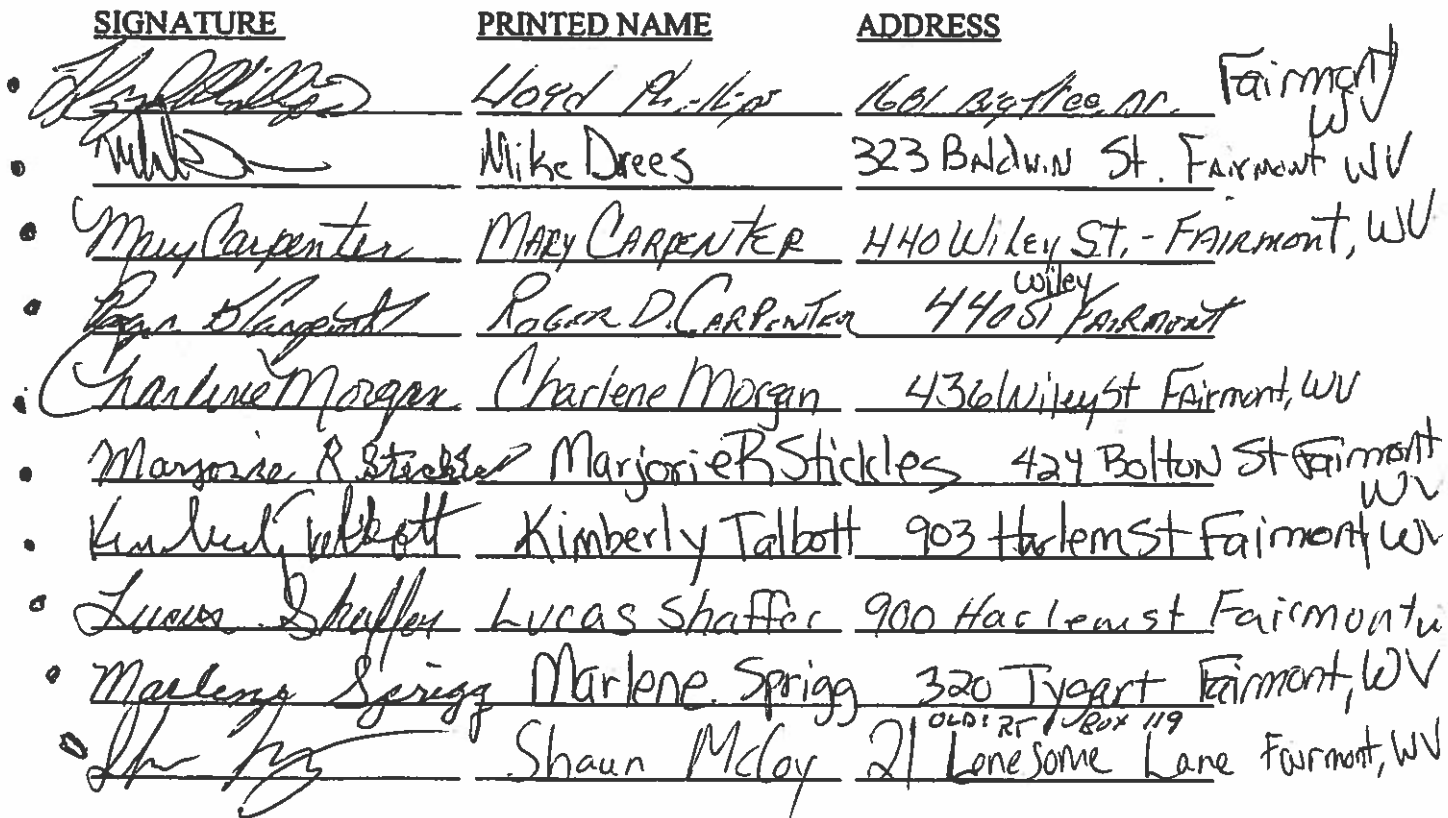 SIGNATURE PRINTED NAME ADDRESS
Lloyd Phillips Lloyd Phillips 1681 Big Tree Dr. Fairmont WV
Mike Drees 323 Baldwin St. Fairmont WV
Mary Carpenter MARY CARPENTER 440 Wiley St. - FAIRMONT, WV
Roger D Carpenter ROGER D. CARPENTER 440 Wiley St FAIRMONT
Charlene Morgan Charlene Morgan 436 Wiley St Fairmont, WV
Marjorie R Stickles Marjorie R Stickles 424 Bolton St Fairmont WV
Kimberly Talbott Kimberly Talbott 903 Harlem St Fairmont WV
Lucas Shaffer Lucas Shaffer 900 Harlem st Fairmont
Marlene Sprigg Marlene Sprigg 320 Tygart Fairmont, WV
OLD: RT 1 BOX 119
Shaun McCoy 21 Lonesome Lane Fairmont, WV